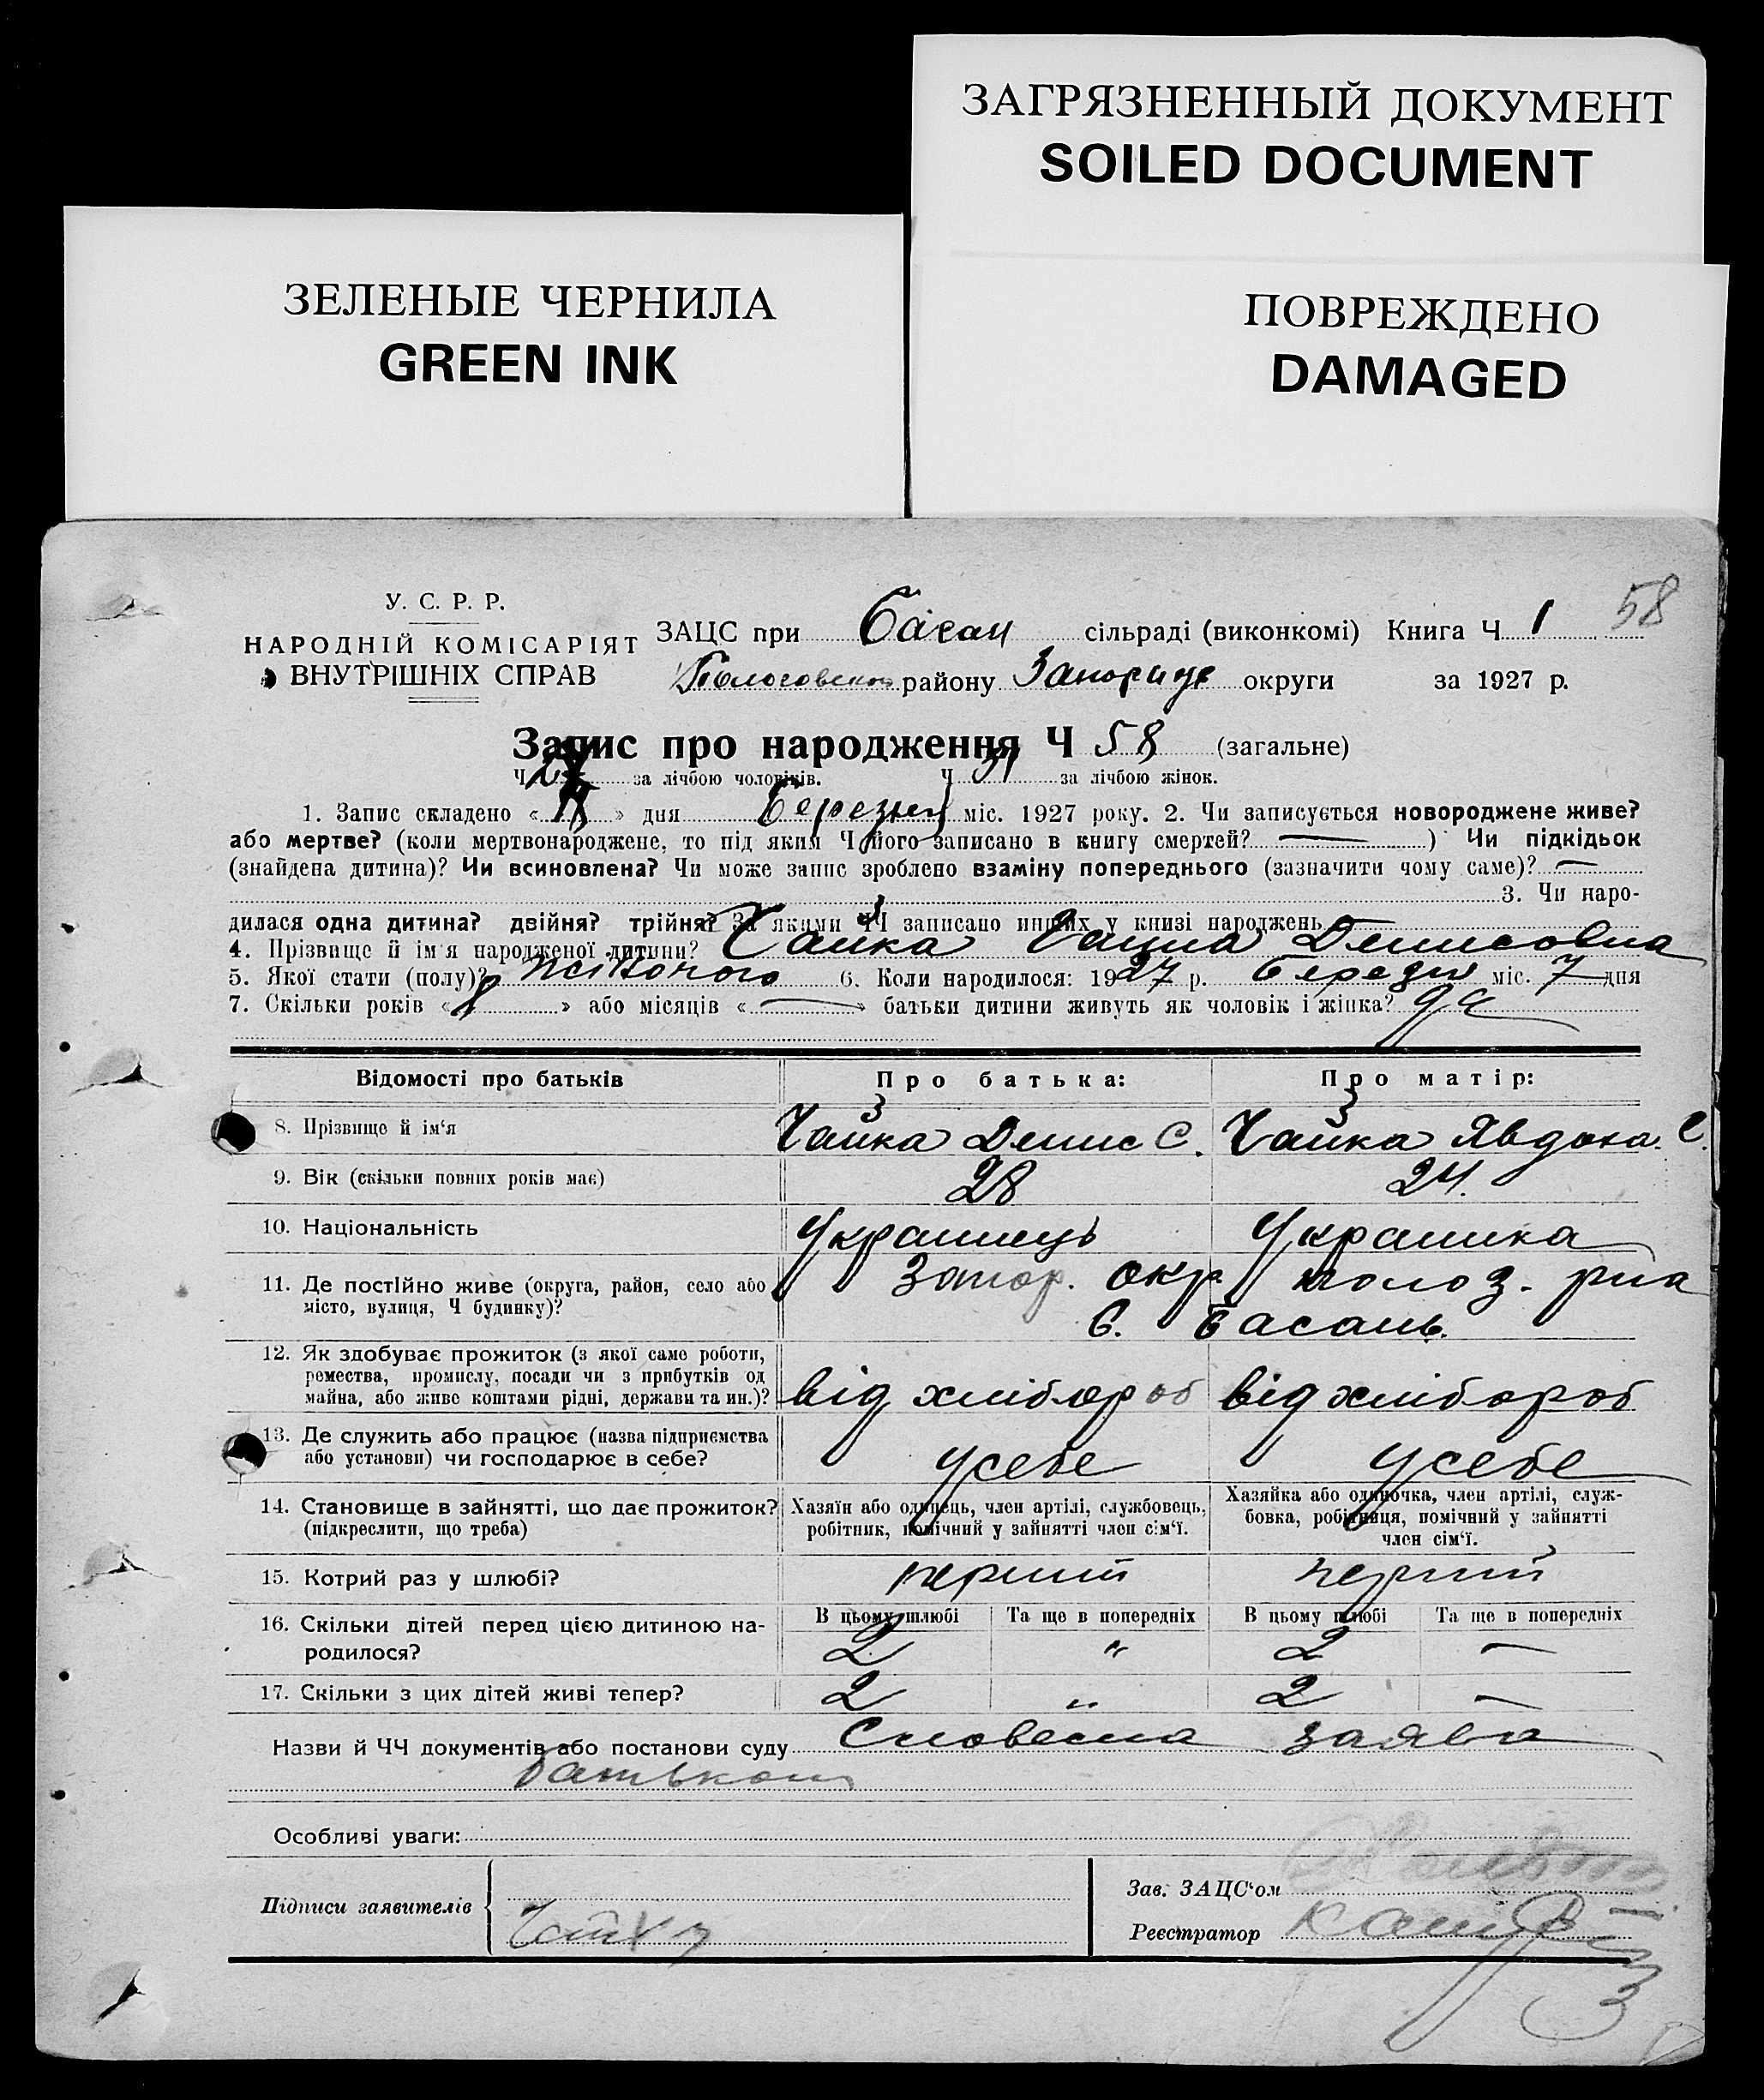 ЗАГРЯЗНЕННЫЙ ДОКУМЕНТ
SOILED DOCUMENT
ЗЕЛЕНЫЕ ЧЕРНИЛА
GREEN INK
ПОВРЕЖДЕНО
DAMAGED
58
У. С. Р. Р.
НАРОДНІЙ КОМІСАРІЯТ
ВНУТРІШНІХ СПРАВ
ЗАЦС при Басан сільраді (виконкомі) Книга Ч 1
району Запоріж округи за 1927 р.
Запис про народження Ч 58 (загальне)
Ч за лічбою чоловіків. Ч 31 за лічбою жінок.
1. Запис складено « » дня Березня міс. 1927 року. 2. Чи записується новороджене живе?
або мертве? (коли мертвонароджене, то під яким Ч його записано в книгу смертей? — ) Чи підкідьок
(знайдена дитина)? Чи всиновлена? Чи може запис зроблено взаміну попереднього (зазначити чому саме)? —
3. Чи наро-
дилася одна дитина? двійня? трійня? За якими ЧЧ записано инших у книзі народжень
4. Прізвище й ім'я народженої дитини? Чайка Денисовна
5. Якої стати (полу)? жіночого 6. Коли народилося: 1927 р. Березня міс. 7 дня
7. Скільки років « 8 » або місяців « — » батьки дитини живуть як чоловік і жінка? да
Відомості про батьків Про батька: Про матір:
8. Прізвище й ім'я Чайка Денис С. Чайка Явдоха С.
9. Вік (скільки повних років має) 28 24.
10. Національність Украинець Украинка
11. Де постійно живе (округа, район, село або Запор. окр полоз. рна
місто, вулиця, Ч будинку)? С. Басань
12. Як здобуває прожиток (з якої саме роботи,
ремества, промислу, посади чи з прибутків од
майна, або живе коштами рідні, держави та ин.)? від хлібороб від хлібороб
13. Де служить або працює (назва підприємства
або установи) чи господарює в себе? усебе усебе
14. Становище в зайнятті, що дає прожиток? Хазяїн або одинець, член артілі, службовець, Хазяйка або одиночка, член артілі, служ-
(підкреслити, що треба) робітник, помічний у зайнятті член сім'ї. бовка, робітниця, помічний у зайнятті
член сім'ї.
15. Котрий раз у шлюбі? перший перший
16. Скільки дітей перед цією дитиною на- В цьому шлюбі Та ще в попередніх В цьому шлюбі Та ще в попередніх
родилося? 2 " 2 —
17. Скільки з цих дітей живі тепер? 2 " 2 —
Назви й ЧЧ документів або постанови суду Словесна заява
батьком
Особливі уваги:
Підписи заявителів
Зав. ЗАЦС'ом
Реєстратор